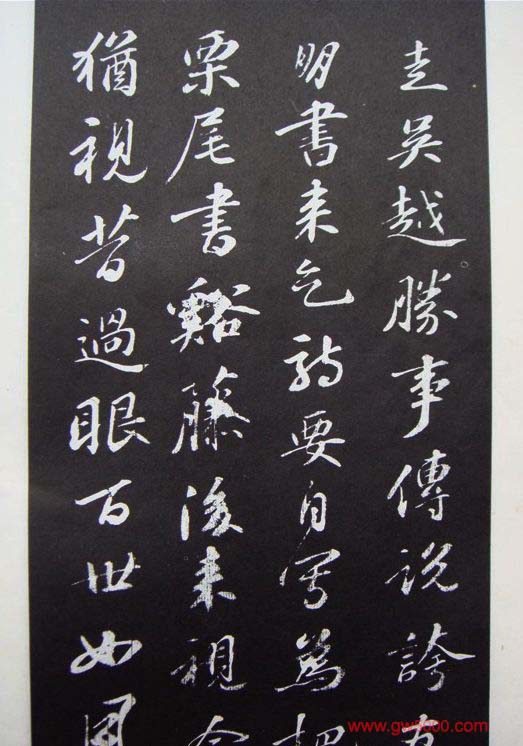 走吳越勝事傳說誇友
朋書来乞詩要自寫爲把
栗尾書谿藤後来視今
猶視昔過眼百世如風
www.gw5000.com